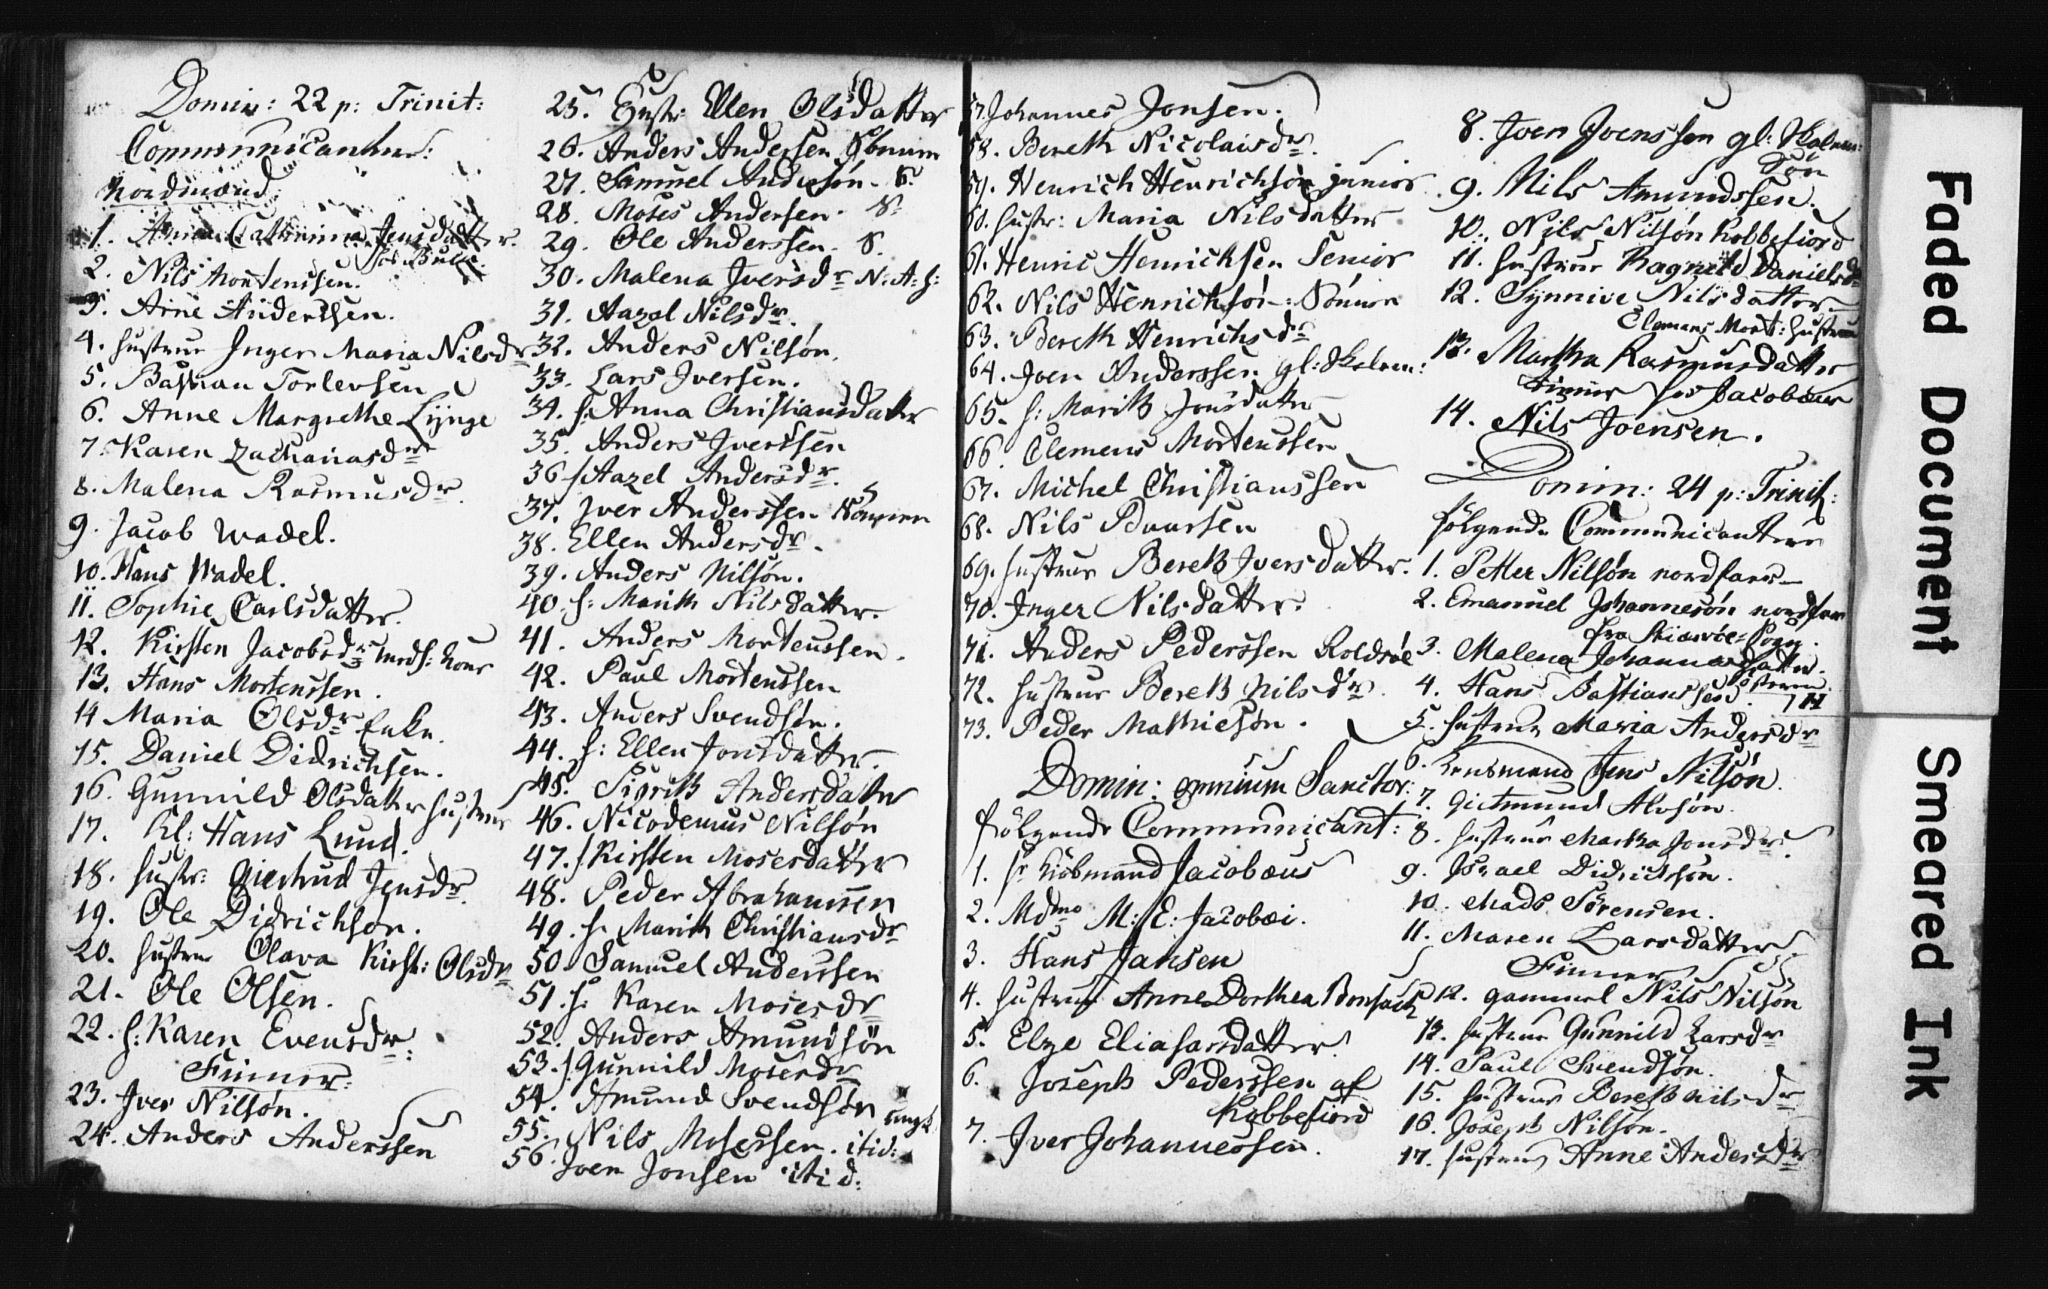 Domin: 22 p: Trinit:
Communicantur:
Nordmænd
1. Anna Cathrinna Jensdatter
hos Bull
2. Nils Mortenssen.
3. Arne Anderssen.
4. hustrue Inger Maria Nilsdr
5. Bastian Torlevsen
6. Anne Margrethe Lynge
7. Karen Zachariasdr
8. Malena Rasmusdr
9. Jacob Wadel.
10. Hans Wadel.
11. Sophie Carlsdatter.
12. Kirsten Jacobsdr Mads: kone
13. Hans Mortenssen.
14 Maria Olsdr Enke.
15. Daniel Didrichsen.
16. Gunnild Olsdatter hustrue
17. Kl: Hans Lund.
18. hustr: Giertrud Jensdr
19. Ole Didrichsøn.
20. hustrue Olava Kirst: Olsdr
21. Ole Olsen.
22. h: Karen Evensdr:
Finner:
23. Iver Nilsøn.
24. Anders Anderssen
25. Hustr: Ellen Olsdatter
26. Anders Andersen
27. Samuel Andersøn. S.
28. Moses Andersen. S.
29. Ole Anderssen. S.
30. Malena Iversdr N: A: h:
31. Aazel Nilsdr.
32. Anders Nilsøn.
33. Lars Iversen.
34. h: Anna Christiansdatter
35. Anders Iverssen
36 h Aazel Andersdr.
37. Iver Anderssen
38. Ellen Andersdr.
39. Anders Nilsøn.
40. h: Marith Nilsdatter.
41. Anders Mortenssen.
42. Paul Mortenssen
43. Anders Svendsøn.
44. h: Ellen Jonsdatter.
45. Sigrith Andersdatter
46. Nicodemus Nilsøn
47. h Kirsten Mosesdatter
48. Peder Abrahamsen
49. h Marith Christiansdr
50. Samuel Anderssen
51. h: Karen Mosesdr
52. Anders Amundsøn
53. h: Gunnild Mosesdr
54. Amund Svendsøn ungk.
55. Nils Mosessen. itid:
56. Joen Jonsen itid:
57. Johannes Jonsen.
58. Bereth Nicolaisdr.
59. Henrich Henrichsøn junior
60. hustr: Maria Nilsdatter
61. Henric Henrichsen Senior
62. Nils Henrichsøn: Sønnen
63. Bereth Henrichsdr
64. Joen Anderssen gl: Skolem:
65. h: Marith Jonsdatter
66. Clemens Mortenssen
67. Michel Christianssen
68. Nils Buursen
69. hustrue Bereth Iversdatter.
70. Inger Nilsdatter.
71. Anders Pederssen Roldsøe
72. hustrue Bereth Nilsdr.
73. Peder Mathiesøn.
Domin: omnium Sanctor:
følgende Communicant:
1. hr Kiøbmand Jacobæus
2. Mdme M: E: Jacobæi.
3. Hans Jansen
4. hustrue Anne Dorthea Bonsach
5. Elze Eliasarsdatter.
6. Joseph Pederssen af
Kobbefiord
7. Iver Johannessen.
8. Joen Joenssen gl: Skolem:
Søn
9. Nils Amundssen.
10. Nils Nilsøn Kobbefiord
11. hustrue Ragnild Danielsdr
12. Synnive Nilsdatter
Clemens Mort: hustrue
13. Martha Rasmusdatter
tiener hos Jacobæus
14. Nils Joensen.
Domin: 24 p: Trinit:
følgende Communicantere
1. Petter Nilsøn nordfarer
2. Emanuel Johannesøn nordfar
fra Skiervøe Sogn.
3. Malena Johannesdatter.
Søsteren
4. Hans Bastianssen.
5. hustrue Maria Andersdr
6. Lensmand Jens Nilsøn.
7. Giertmund Alvsøn.
8. hustrue Martha Jonsdr.
9. Israel Didrichsøn.
10. Mads Sørensen.
11. Maren Larsdatter
Finner
12. gammel Nils Nilsøn
13. hustrue Gunnild Larsdr
14. Paul Svendsøn.
15. hustrue Bereth Nilsdr
16. Joseph Nilsøn.
17. hustrue Anne Andersdr
Faded Document
Smeared Ink